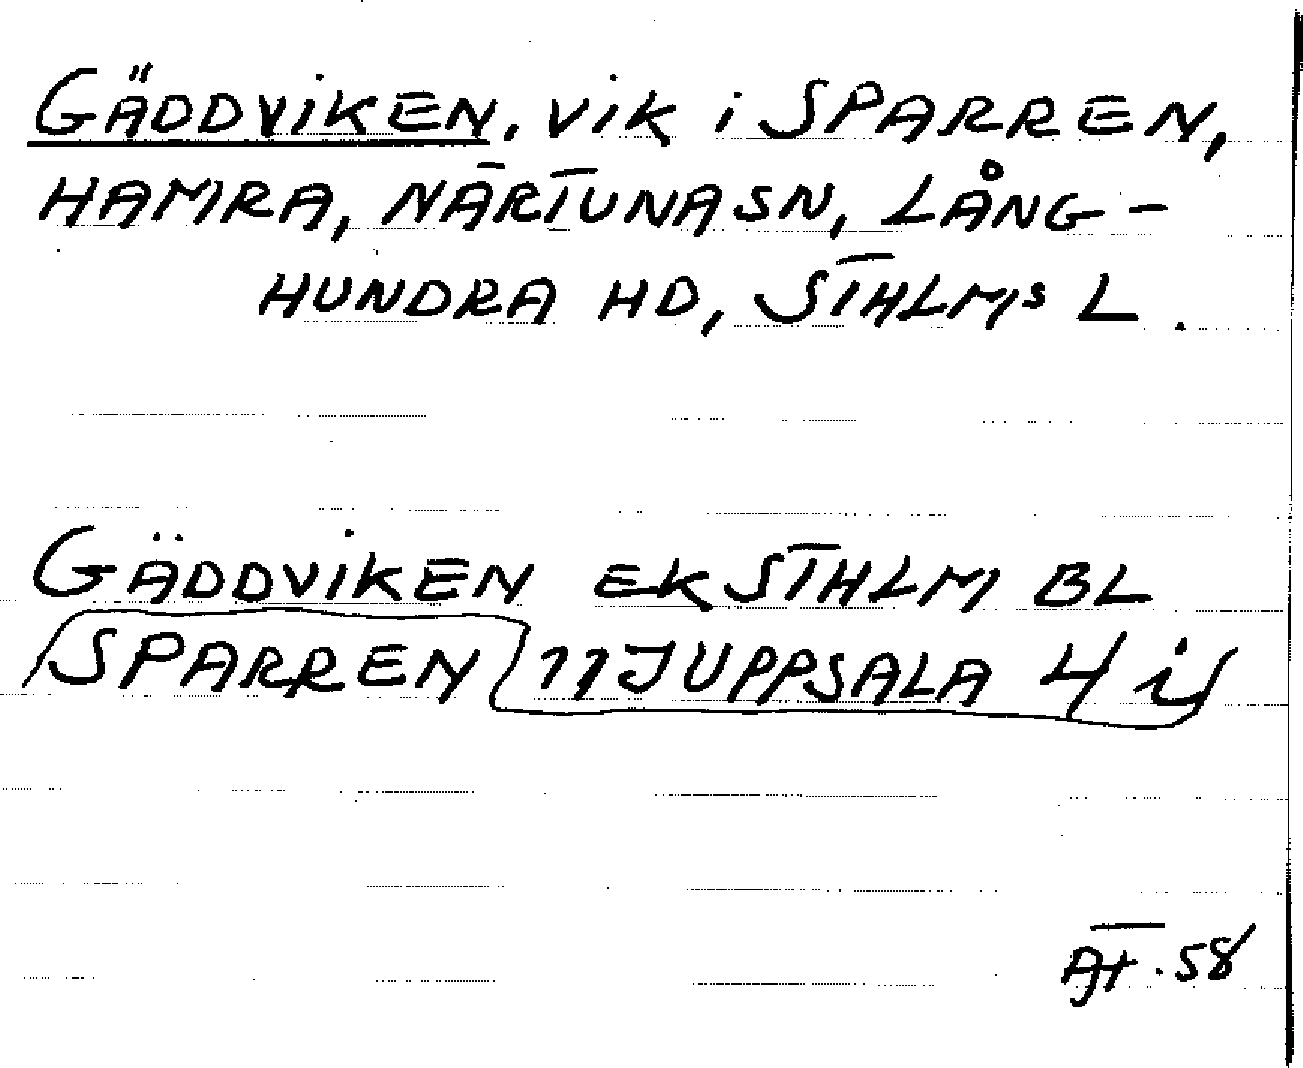 GÄDDVIKEN, VIK i SPARREN,
HAMRA, NÄRTUNA SN, LÅNG-
HUNDRA HD, STHLMS L.
GÄDDVIKEN EK STHLM BL
SPARREN 11J UPPSALA 4 i
58